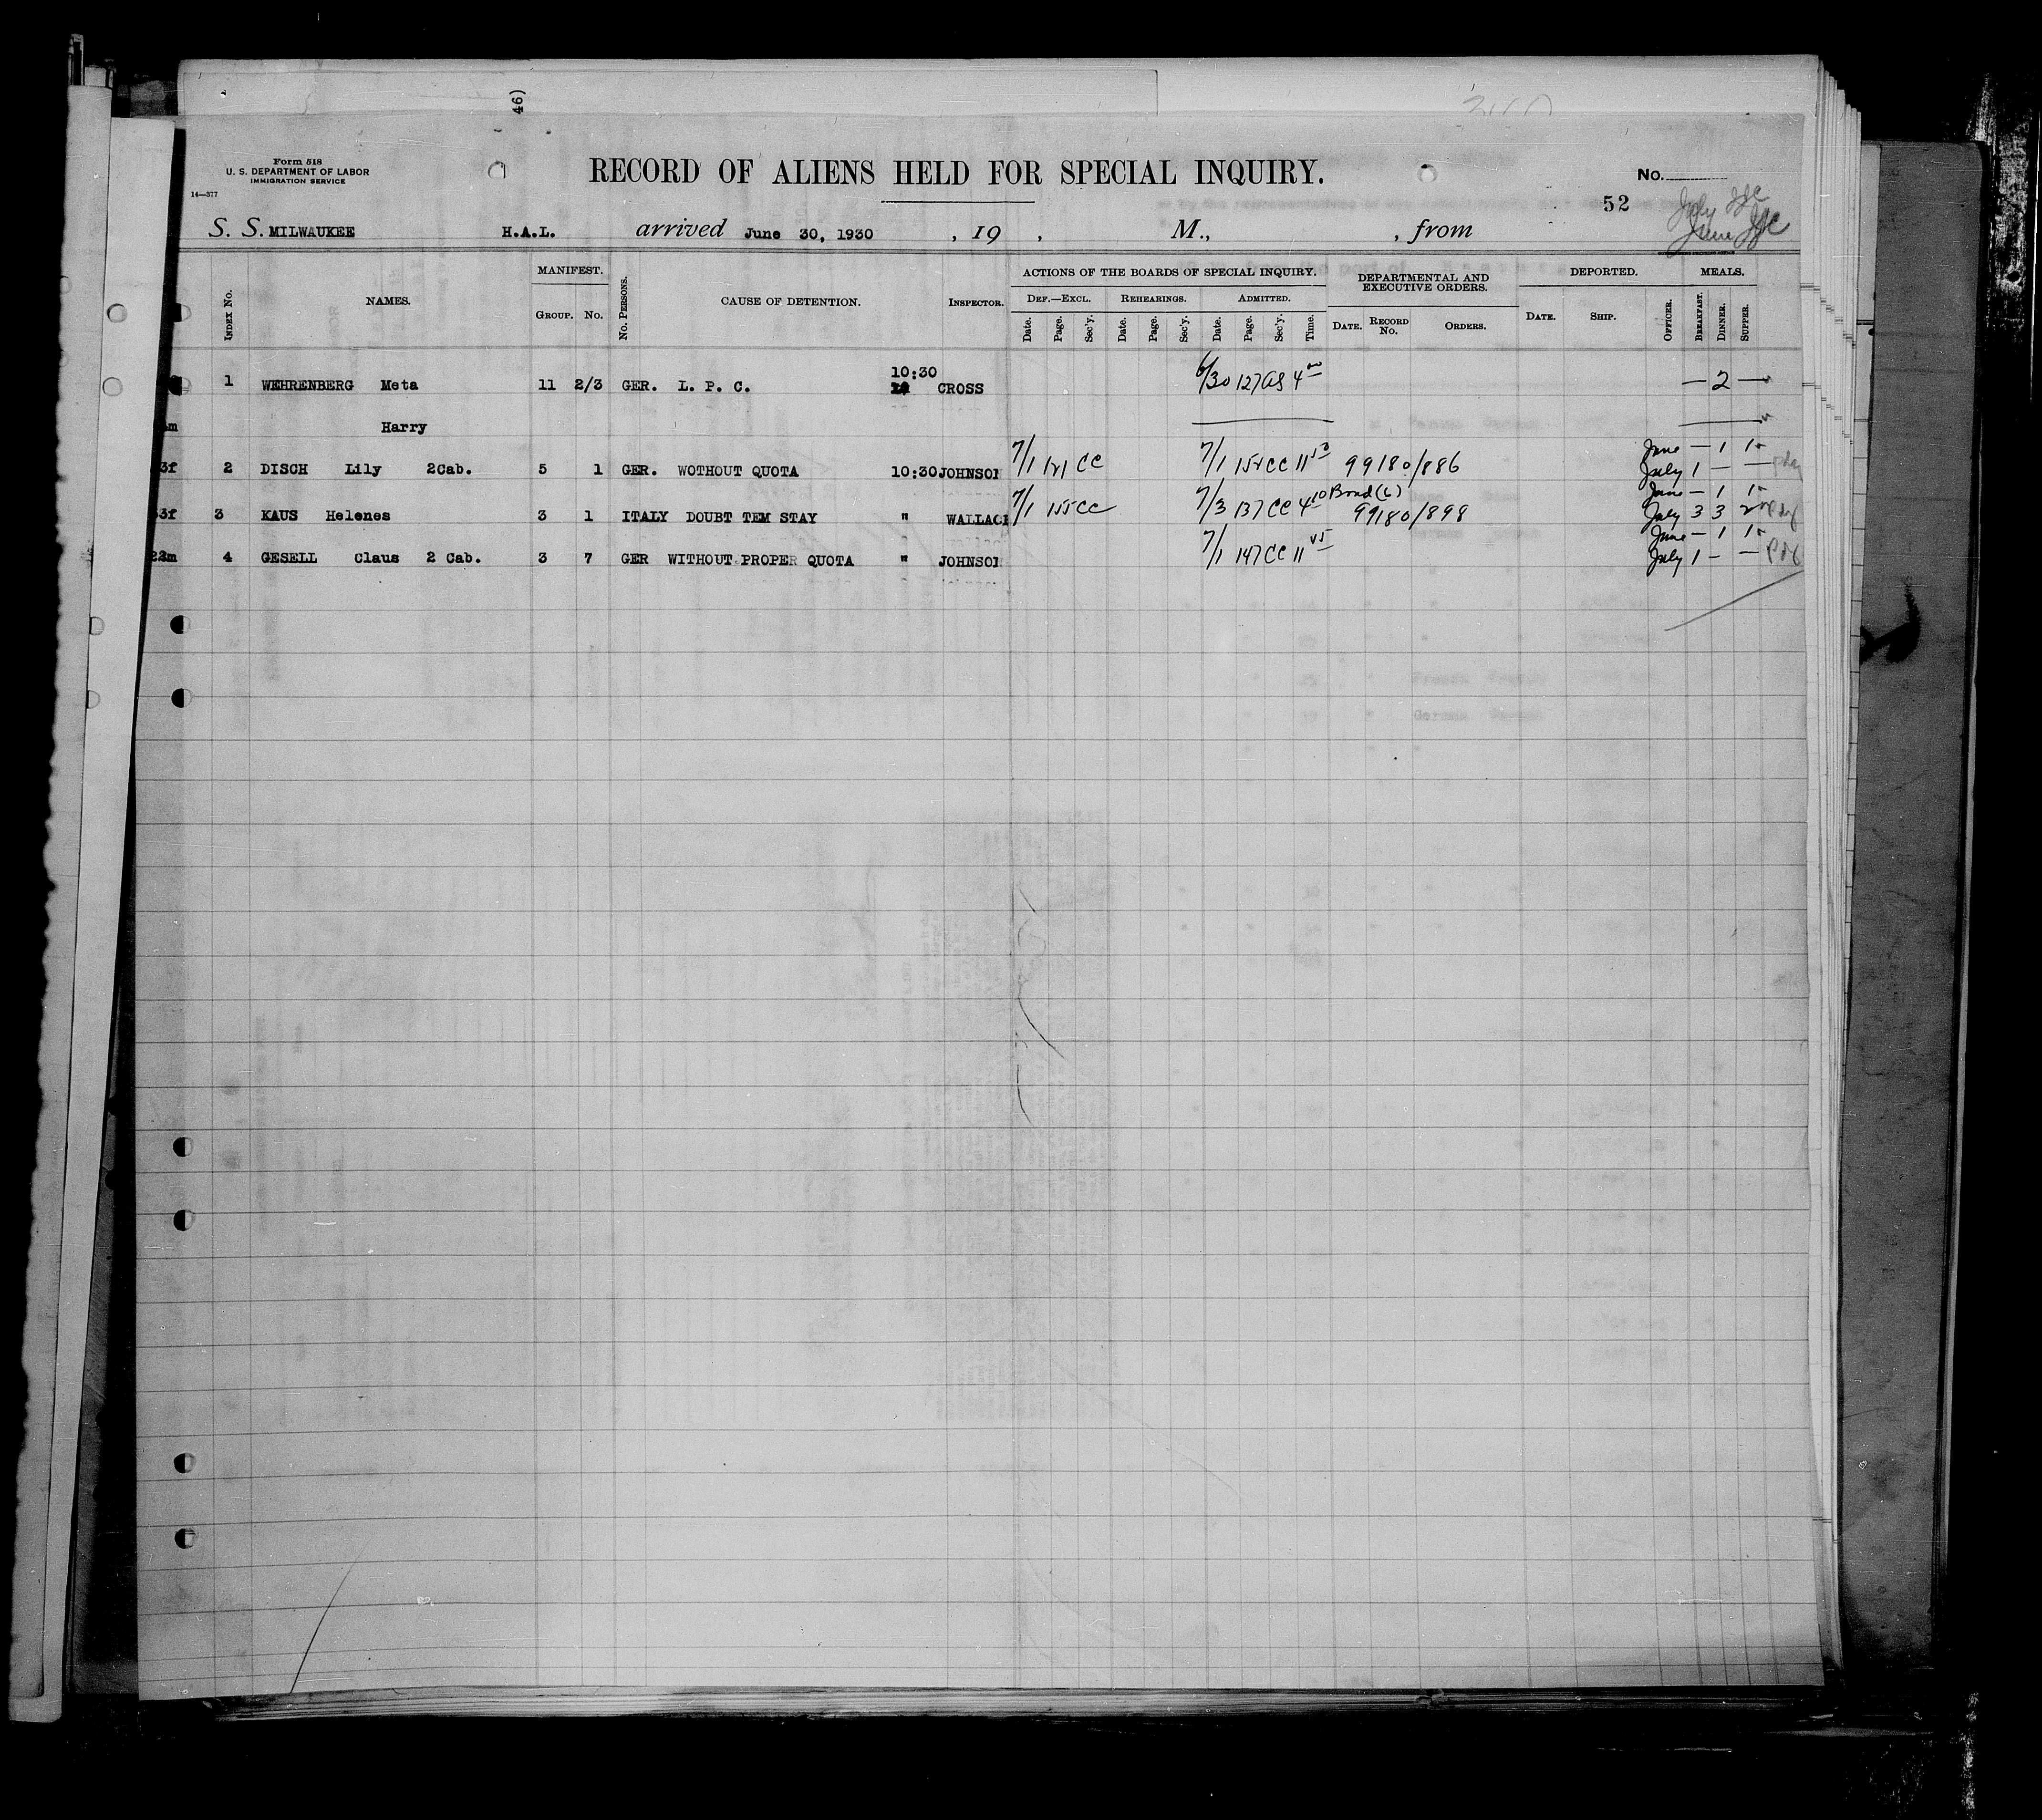 46)
Form 518
U. S. DEPARTMENT OF LABOR
IMMIGRATION SERVICE
14—377
RECORD OF ALIENS HELD FOR SPECIAL INQUIRY.
No.
52
July
June
S. S. MILWAUKEE H.A.L. arrived June 30, 1930 , 19 , M., , from
INDEX No. NAMES. MANIFEST. GROUP. No. No. PERSONS. CAUSE OF DETENTION. INSPECTOR. ACTIONS OF THE BOARDS OF SPECIAL INQUIRY. DEF.—EXCL. Date. Page. Sec'y. REHEARINGS. Date. Page. Sec'y. ADMITTED. Date. Page. Sec'y. Time. DEPARTMENTAL AND EXECUTIVE ORDERS. DATE. RECORD No. ORDERS. DEPORTED. DATE. SHIP. OFFICER. MEALS. BREAKFAST. DINNER. SUPPER.
10:30
1 WEHRENBERG Meta 11 2/3 GER. L. P. C. CROSS 6/30 127 AS 4 00 — 2 —
m Harry
June — 1 1
3f 2 DISCH Lily 2Cab. 5 1 GER. WOTHOUT QUOTA 10:30 JOHNSON 7/1 121 CC 7/1 152 CC 11 50 99180/886 July 1 — —
Bond (6) June — 1 1
33f 3 KAUS Helenes 3 1 ITALY DOUBT TEM STAY " WALLACE 7/1 155 CC 7/3 137 CC 4 10 99180/898 July 3 3 2
June — 1 1
22m 4 GESELL Claus 2 Cab. 3 7 GER WITHOUT PROPER QUOTA " JOHNSON 7/1 147 CC 11 45 July 1 — —